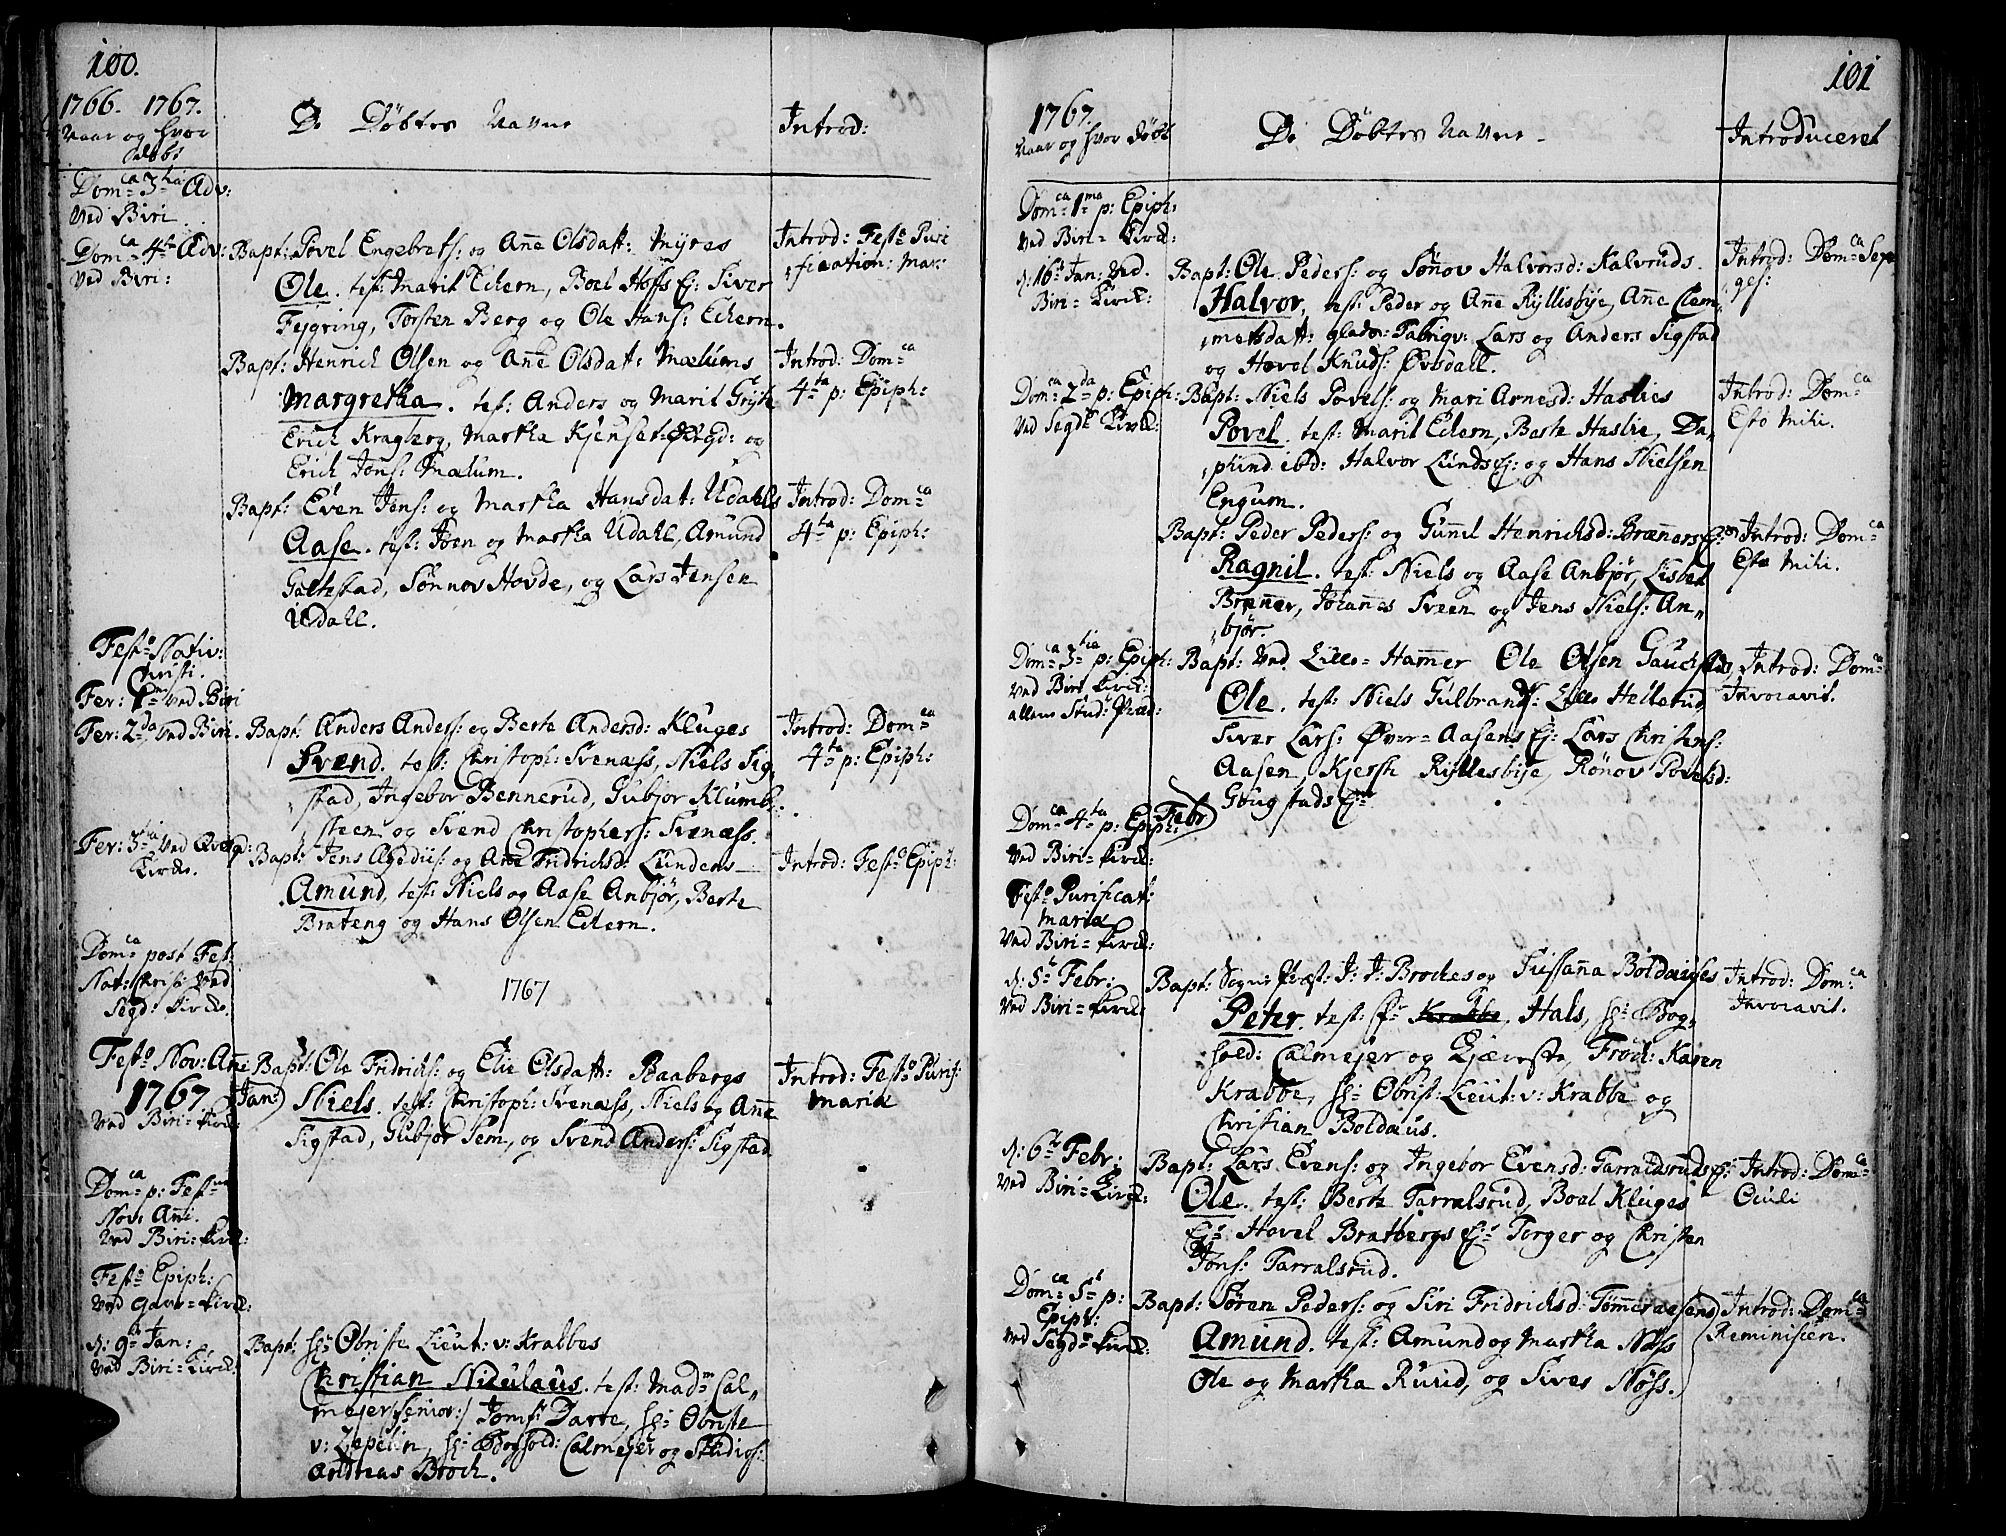 100.
1766. 1767.
Naar og hvor
De Döbtes Navne
Introd:
Dom:ca 3:tia Adv:
Ved Biri
Dom:ca 4:ta Adv:
Ved Biri:
Bapt: Povel Engebrets: og Anne Olsdatt: Myres
Ole. test: Marit Eckern, Boel Hoffs Ej: Siver
Fejgring, Torsten Berg og Ole Hans: Eckern.
Introd: Festo Puri
fication: Mar:
Bapt: Henrich Olsen og Anne Olsdat: Mælums
Margretha. test: Anders og Marit Gryte
Erich Kragberg, Martha Kjenset: og
Erich Jons: Mælum.
Introd: Dom:ca
4:ta p: Epiph:
Bapt: Even Jens: og Martha Hansdat: Udahls
Aase. test: Joen og Martha Udahl, Amund
Galtestad, Sönnov Hovde, og Lars Jensen
Udahl.
Introd: Dom:ca
4:ta p: Epiph:
Festo Nativ:
Christi.
Fer: 1:ma ved Biri
Fer: 2:da ved Biri.
Bapt: Anders Anders: og Berte Andersd: Kluges
Svend. test: Christoph: Svenæss, Niels Sig,
stad, Ingebor Bennerud, Gubjor Klumb:
steen og Svend Christophers: Svenæss.
Introd: Dom:ca
4:ta p: Epiph:
Fer: 3:tia ved
Kircke.
Bapt: Jens Ægidii: og Ane Fridrichsd: Lundens
Amund, test: Niels og Aase Anbjør, Berte
Brateng og Hans Olsen Eckern.
Introd: Festo Epiph:
Dom:ca post Fest:
Nat: Christi: ved
Segd: Kircke.
1767
Festo Nov: Anni
1767 Jan:)
Ved Biri: Kirck:
Bapt: Ole Fridrichs: og Elie Olsdatt: Raabergs
Niels. test: Christoph: Svenæss, Niels og Anne
Sigstad, Gubjor Sem, og Svend Anders: Sigstad
Introd: Festo Purif:
Mariæ
Dom:ca p: Fest:
Nov: Anni.
Ved Biri: Kirck:
Festo Epiph:
Ved Kirck:
d: 9de Jan:
Ved Biri= Kirck:
Bapt: Hr: Obriste Lieut: v: Krabbes
Christian Nicolaus. test: Mad:m Cal,,
mejer /:senior:/ Jomf: Darre, Hr: Obriste
v: Zepelin, Hr: Calmejer og Studios:
Andreas Broch.
101
1767.
Naar og hvor döbt
De Döbtes Navne
Introduceret
Dom:ca 1:ma p: Epiph:
Ved Biri= Kirck:
d: 16de Jan: Ved.
Biri= Kirck:
Bapt: Ole Peders: og Sönnov Halvorsd: Kalvruds.
Halvor, test: Peder og Anne Ryllisbye, Anne Clem,,
metsdatt: Lars og Anders Sigstad
og Hovel Knuds: Øvisdall.
Introd: Dom:ca Sep
ges:
Dom:ca 2:da p: Epiph:
Ved Segd: Kirck:
Bapt: Niels Povels: og Mari Arnesd: Haslies
Povel. test: Marit Eckern, Berte Haslie, Da,,
phind ibd: Halvor Lunds Ej: og Hans Nielsen
Engum.
Introd: Dom:ca
Esto Mihi.
Bapt: Peder Peders: og Gunil Henrichsd: Brænners
Ragnil. test: Niels og Aase Anbjør, Lisbet
Brenner, Johannes Sveen og Jens Niels: An,,
bjør.
Introd: Dom:ca
Esto Mihi.
Dom:ca 3:tia p: Epiph:
ved Biri Kirck:
allem Stud: Præd:
Bapt: Ved Lille= Hammer Ole Olsen
Ole. test: Niels Gulbrands: Lille Hellerud
Siver Lars: Øver= Aasens Ej: Lars Christens:
Aasen, Kjersti Ryllesbye, Rönov Povelsd:
Gougstads Ej:
Introd: Dom:ca
Invocavit.
Dom:ca 4:ta p: Epiph: Febr)
Ved Biri= Kirck:
Festo Purificat:
Mariæ
Ved Biri= Kirck:
d: 5te Febr:
Ved Biri= Kirck:
Bapt: Sogne Præst: J: J: Broches og Sussanna Boldevigs
Peter. test: Hals, Hr: Bog,,
hold: Calmejer og Kjærfte, Fröck: Karen
Krabbe, Hr: Obrist: Lieut: v: Krabbe og
Christian Boldævs.
Introd: Dom:ca
Invocavit.
d: 6te Febr:
Ved Biri= Kirck:
Bapt: Lars Evens: og Ingebor Evensd: Tarraldsruds Ej:
Ole. test: Berte Tarralsrud, Boel Kluges
Ej: Hovel Bratbergs Ej: Torger og Christen
Jons: Tarralsrud.
Introd: Dom:ca
Oculi
Dom:ca 5:ta p:
Epiph:
Ved Segd= Kirck:
Bapt: Sören Peders: og Siri Fridrichsd: Tömmeraasens
Amund. test: Amund og Martha Nöss
Ole og Martha Ruud, og Sives Nöss.
Introd: Dom:ca
Reminiscer.